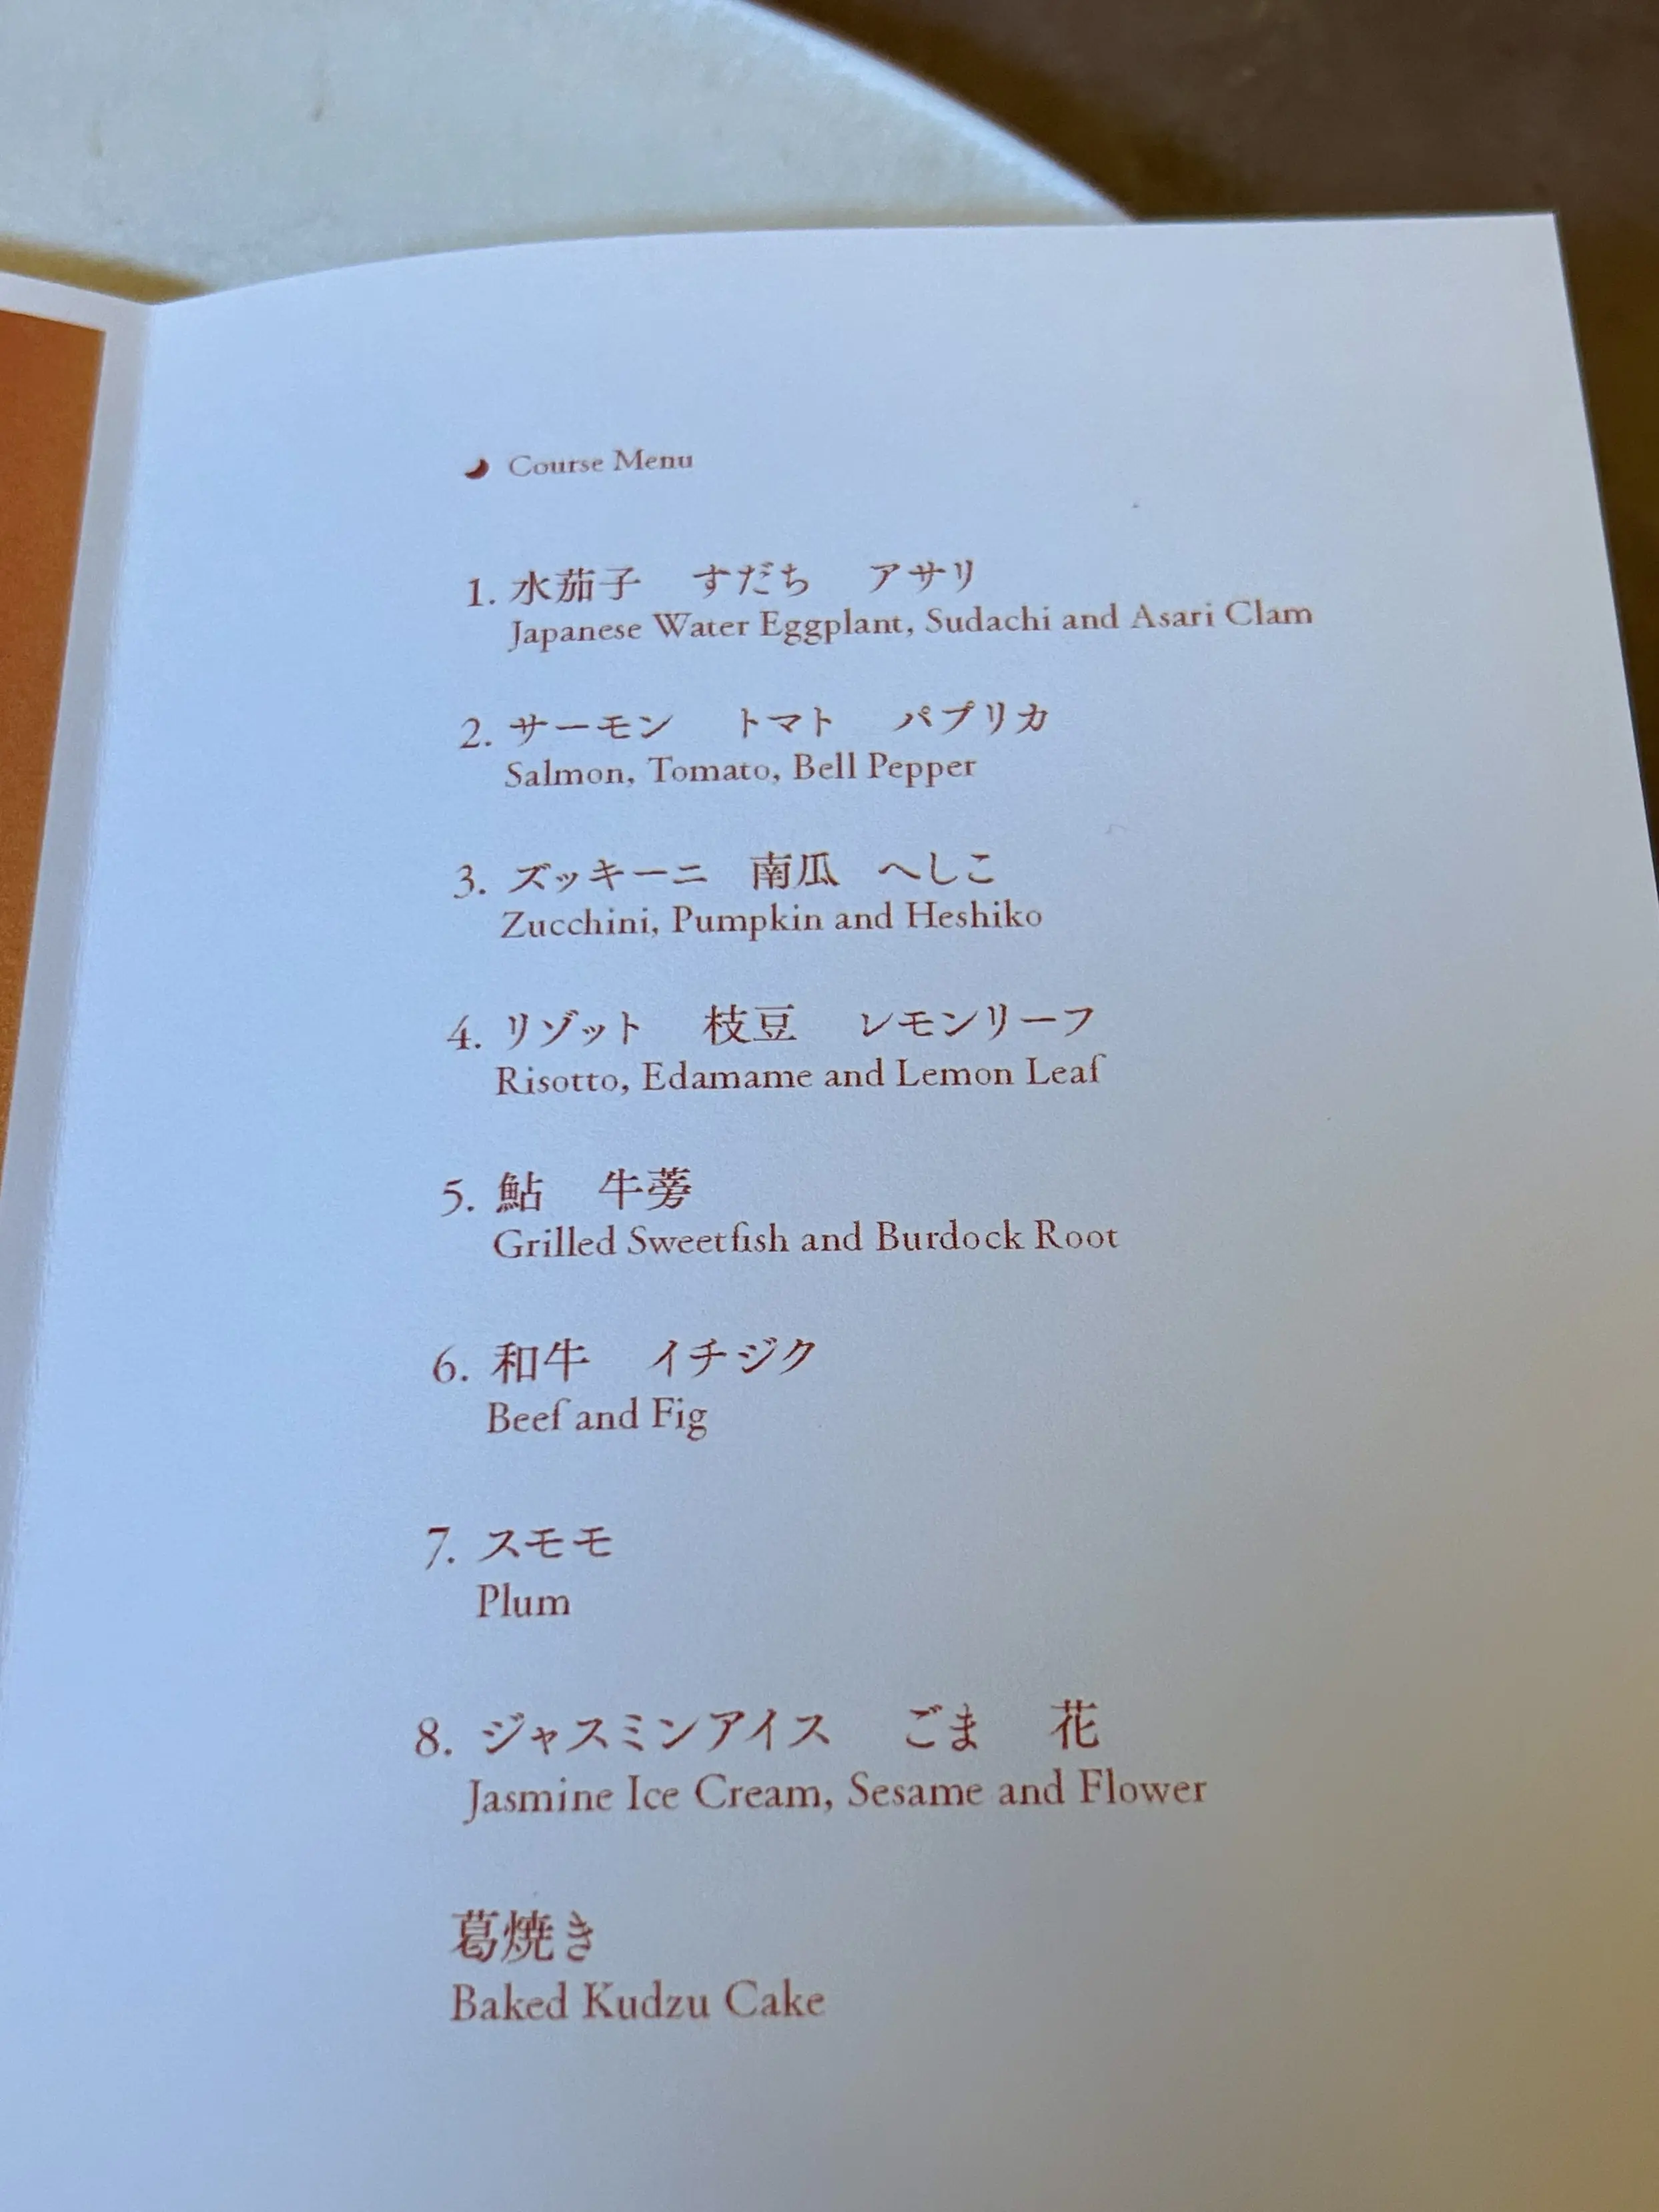 Course Menu
1. 水茄子 すだち アサリ
Japanese Water Eggplant, Sudachi and Asari Clam
2. サーモン トマト パプリカ
Salmon, Tomato, Bell Pepper
3. ズッキーニ 南瓜 へしこ
Zucchini, Pumpkin and Heshiko
4. リゾット 枝豆 レモンリーフ
Risotto, Edamame and Lemon Leaf
5. 鮎 牛蒡
Grilled Sweetfish and Burdock Root
6. 和牛 イチジク
Beef and Fig
7. スモモ
Plum
8. ジャスミンアイス ごま 花
Jasmine Ice Cream, Sesame and Flower
葛焼き
Baked Kudzu Cake